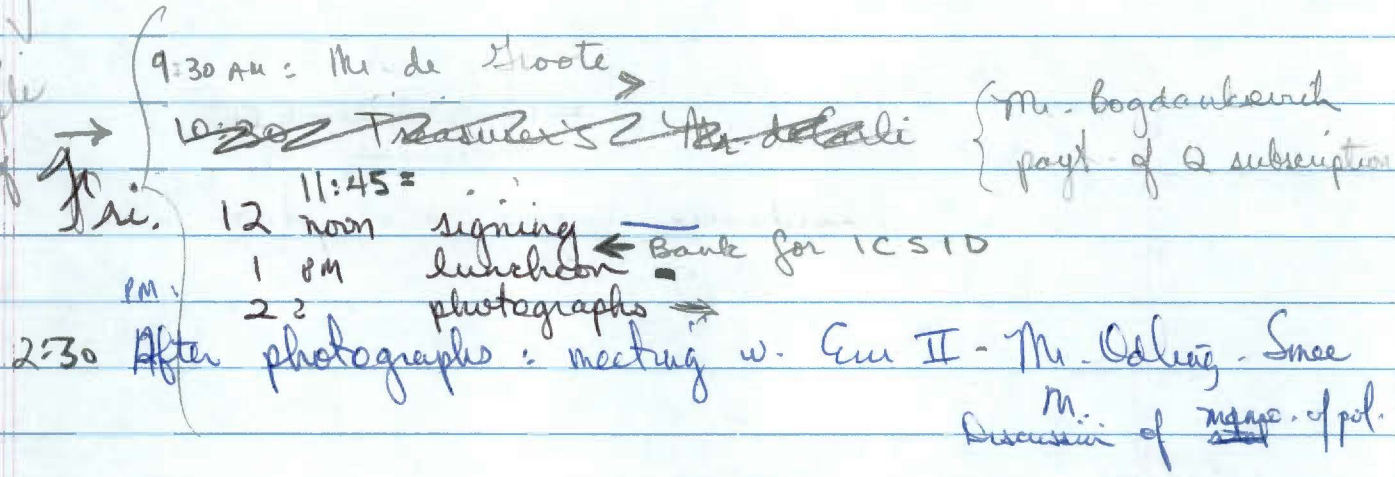 9:30 AM : Mr. de Groote
10:30 Treasurer's
{ Mr. Bogdankevich
payt. of Q subscription
→ Fri.
11:45 =
12 noon signing
← Bank for ICSID
1 PM luncheon
PM.
2 : photographs
2:30 After photographs : meeting w. Eur II - Mr. Odling-Smee
M.
Discussion of of pol.